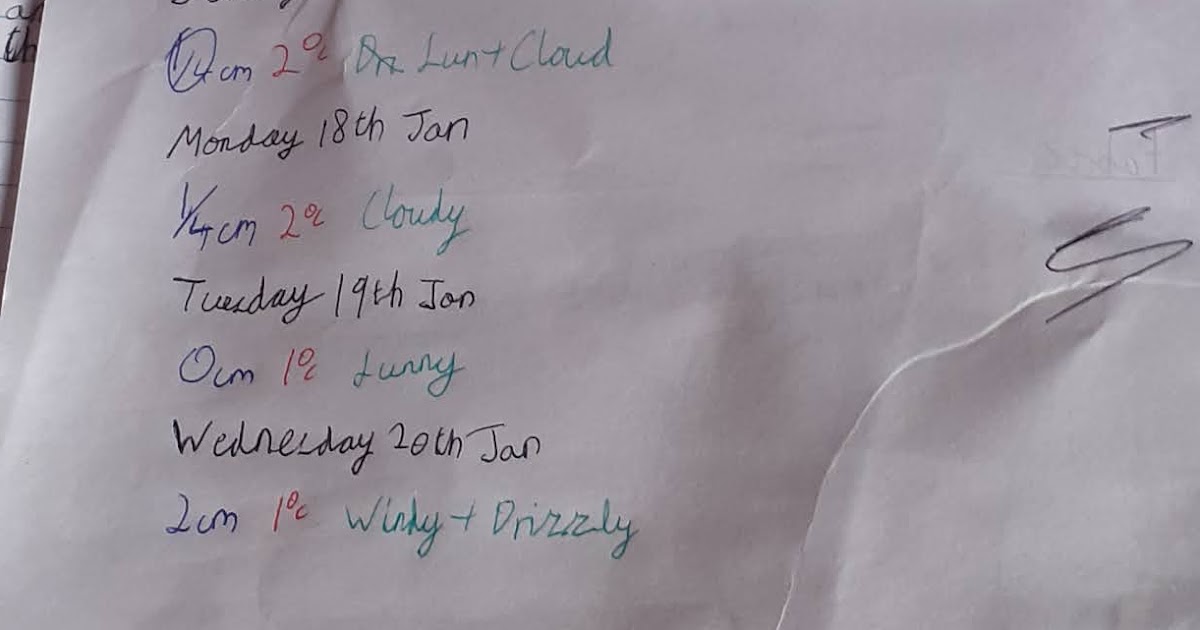 1/4cm 2°c Sun + Cloud
Monday 18th Jan
1/4cm 2°c Cloudy
Tuesday 19th Jan
0cm 1°c Sunny
Wednesday 20th Jan
2cm 1°c Windy + Drizzly